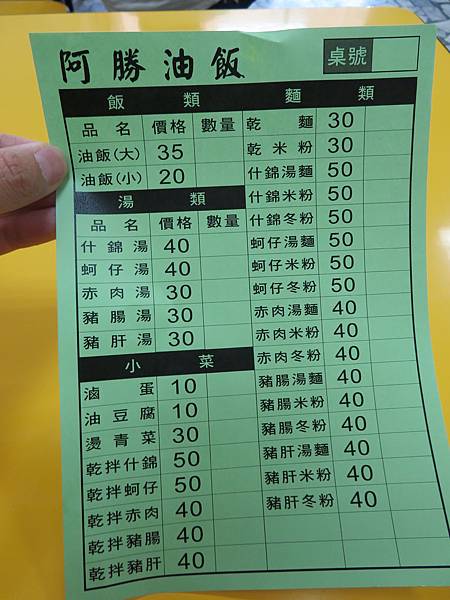 阿勝油飯
桌號
飯類
品名 價格 數量
油飯(大) 35
油飯(小) 20
湯類
品名 價格 數量
什錦湯 40
蚵仔湯 40
赤肉湯 30
豬腸湯 30
豬肝湯 30
小菜
滷蛋 10
油豆腐 10
燙青菜 30
乾拌什錦 50
乾拌蚵仔 50
乾拌赤肉 40
乾拌豬腸 40
乾拌豬肝 40
麵類
乾麵 30
乾米粉 30
什錦湯麵 50
什錦米粉 50
什錦冬粉 50
蚵仔湯麵 50
蚵仔米粉 50
蚵仔冬粉 50
赤肉湯麵 40
赤肉米粉 40
赤肉冬粉 40
豬腸湯麵 40
豬腸米粉 40
豬腸冬粉 40
豬肝湯麵 40
豬肝米粉 40
豬肝冬粉 40